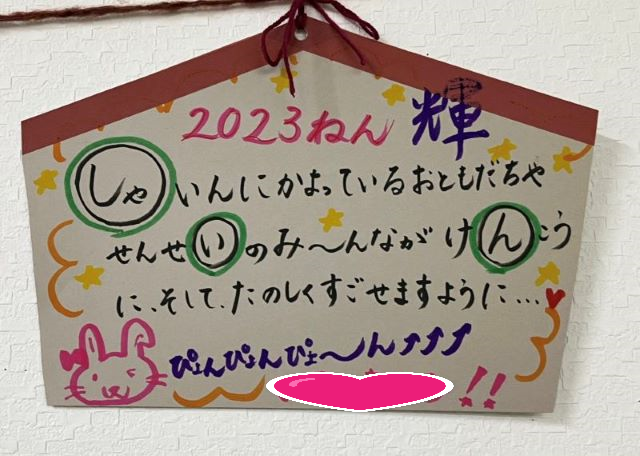 2023ねん 輝
しゃいんにかよっているおともだちや
せんせいのみ〜んながけんこう
に、そして、たのしくすごせますように…
ぴょんぴょんぴょ〜ん↑↑↑
!!